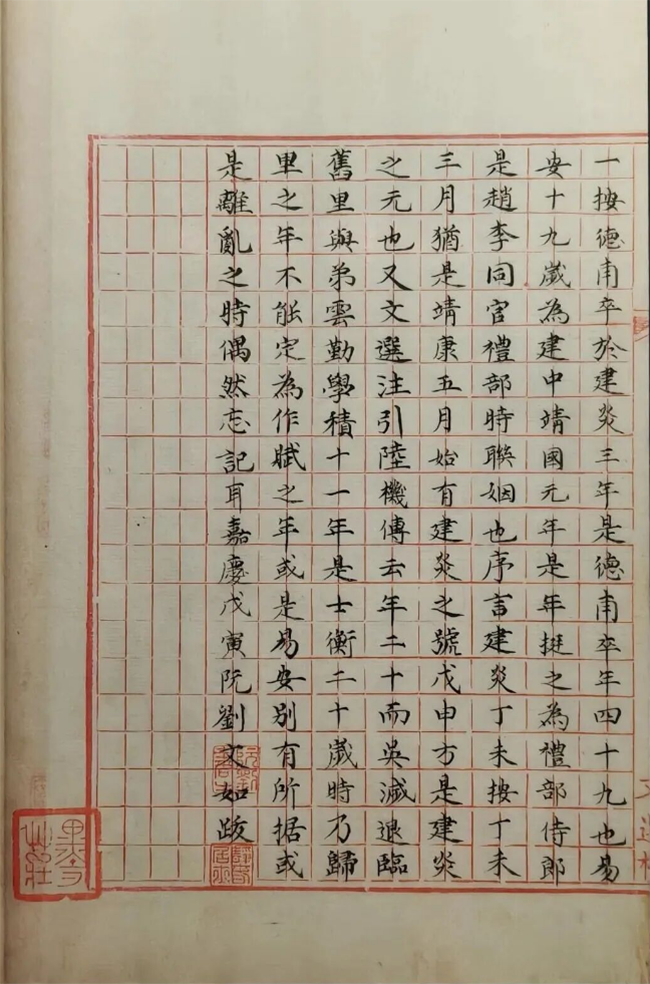 一按德甫卒於建炎三年是德甫卒年四十九也易
安十九歲為建中靖國元年是年挺之為禮部侍郎
是趙李同官禮部時聯姻也序言建炎丁未按丁未
三月猶是靖康五月始有建炎之號戊申方是建炎
之元也又文選注引陸機傳云年二十而吳滅退臨
舊里與弟雲勤學積十一年是士衡二十歲時乃歸
里之年不能定為作賦之年或是易安別有所据或
是離亂之時偶然忘記耳嘉慶戊寅阮劉文如跋